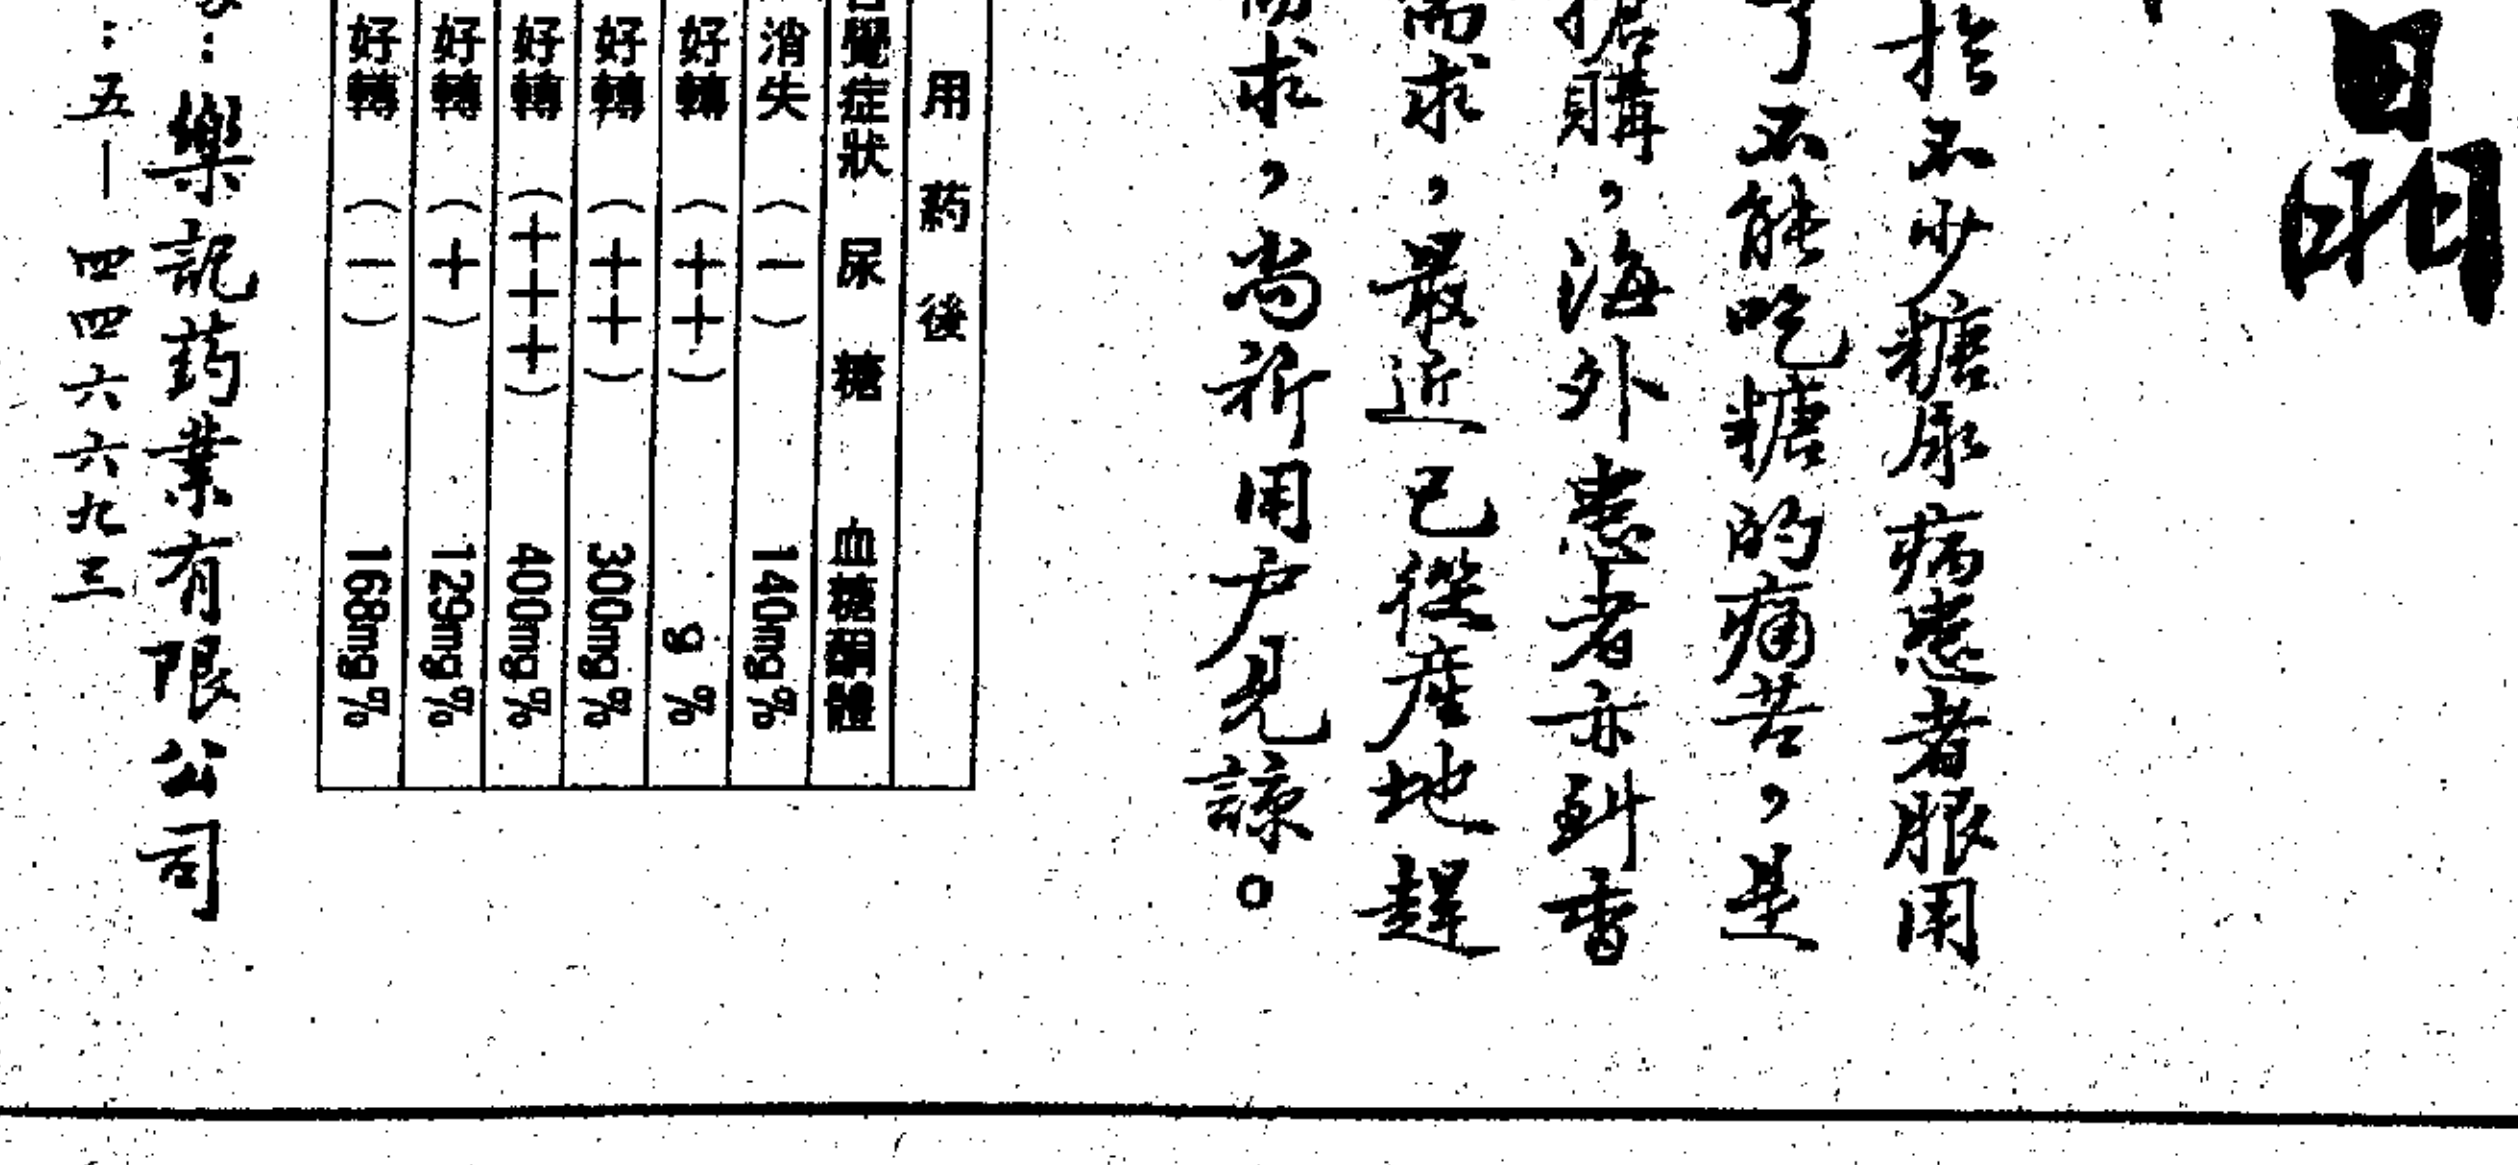 指不少糖尿病患者服用
了不能吃糖的痛苦,是
搶購,海外患者亦到香
需求,最近已從產地趕
求,尚祈用户見諒。
用药後
自覺症狀 尿糖 血糖酮體
消失 (一) 140mg%
好轉 (++) g%
好轉 (++) 300mg%
好轉 (+++) 400mg%
好轉 (+) 129mg%
好轉 (一) 168mg%
:樂記药業有限公司
:五—四四六六九三